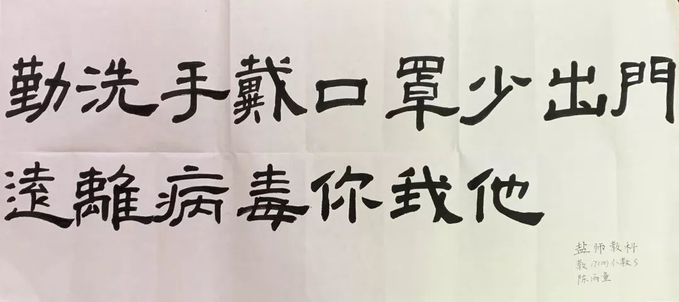 勤洗手戴口罩少出門
遠離病毒你我他
盐师教科
教17(四)小教S
陈雨童